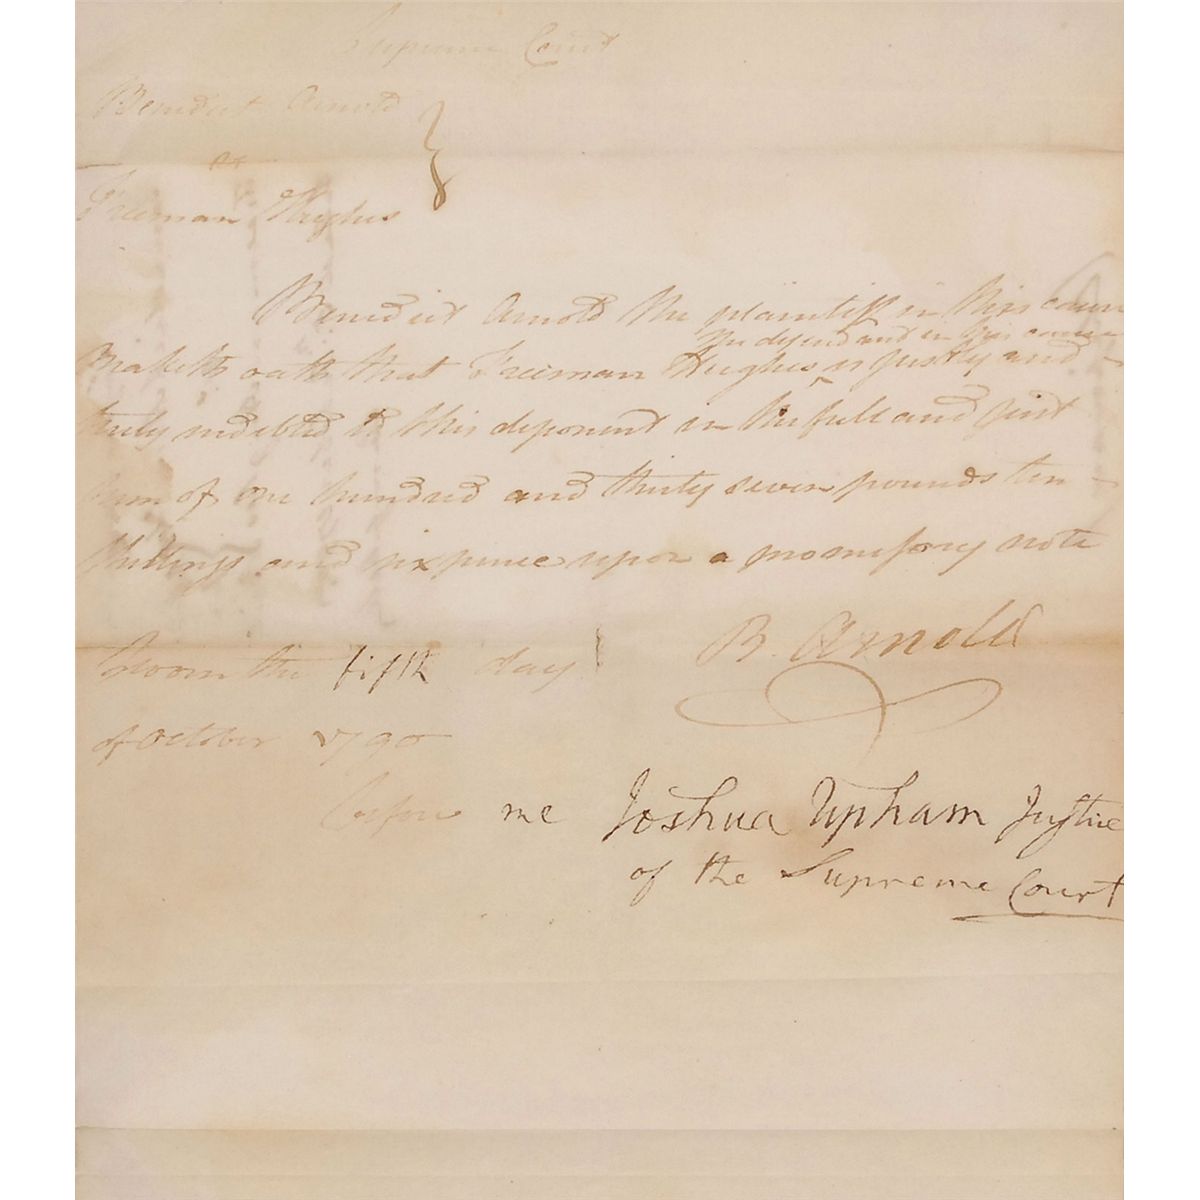 Supreme Court
Benedict Arnold
vs
Freeman Hughes
Benedict Arnold the plaintiff in this cause
the defendant in this cause
Maketh oath that Freeman Hughes ^ is justly and
truly indebted to this deponent in the full and just
sum of one hundred and thirty seven pounds ten
shillings and sixpence upon a promissory note
B. Arnold
Sworn the fifth day
of October 1790
before me Joshua Upham Justice
of the Supreme Court